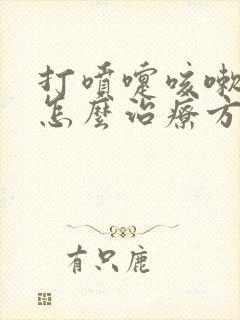 打噴嚏咳嗽
怎麼治療方
有只鹿